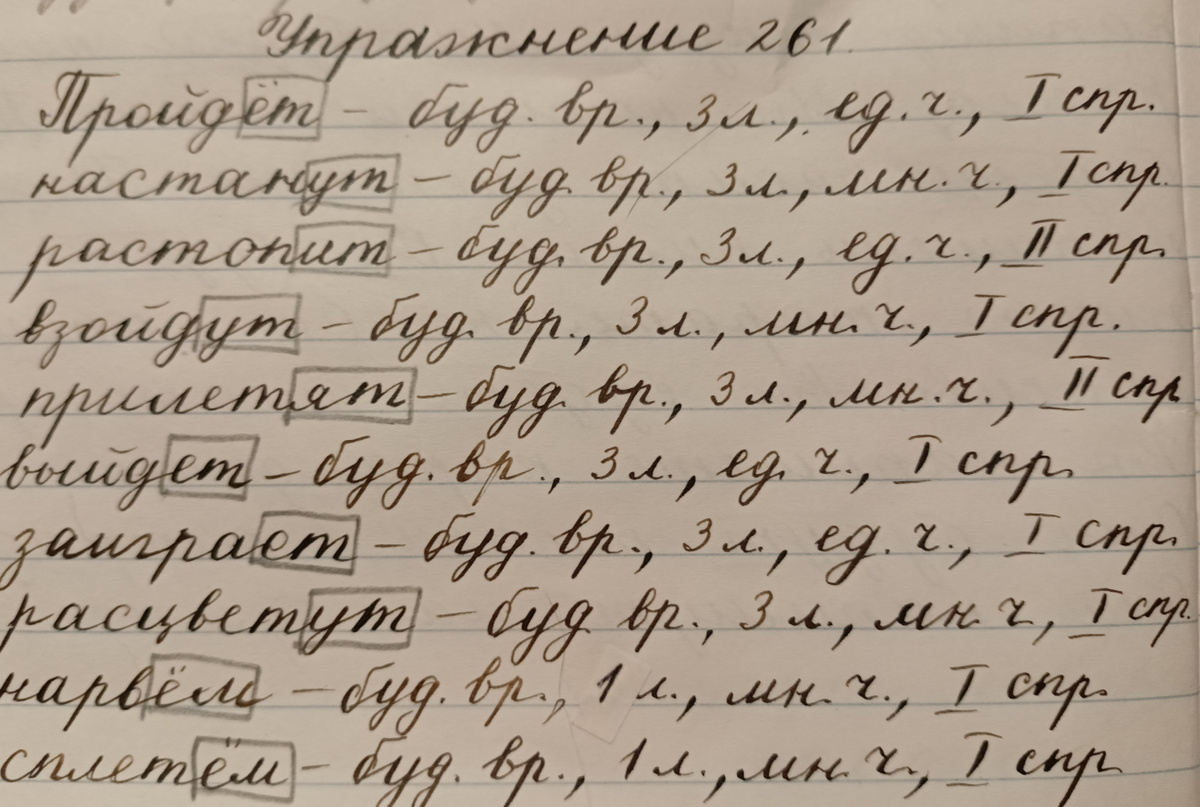 Упражнение 261.
Пройдёт – буд. вр., 3 л., ед. ч., I спр.
настанут – буд. вр., 3 л., мн. ч., I спр.
растопит – буд. вр., 3 л., ед. ч., II спр.
взойдут – буд. вр., 3 л., мн. ч., I спр.
прилетят – буд. вр., 3 л., мн. ч., II спр
выйдет – буд. вр., 3 л., ед. ч., I спр.
заиграет – буд. вр., 3 л., ед. ч., I спр.
расцветут – буд вр., 3 л., мн. ч, I спр.
нарвём – буд. вр., 1 л., мн. ч., I спр.
сплетём – буд. вр., 1 л., мн. ч., I спр.